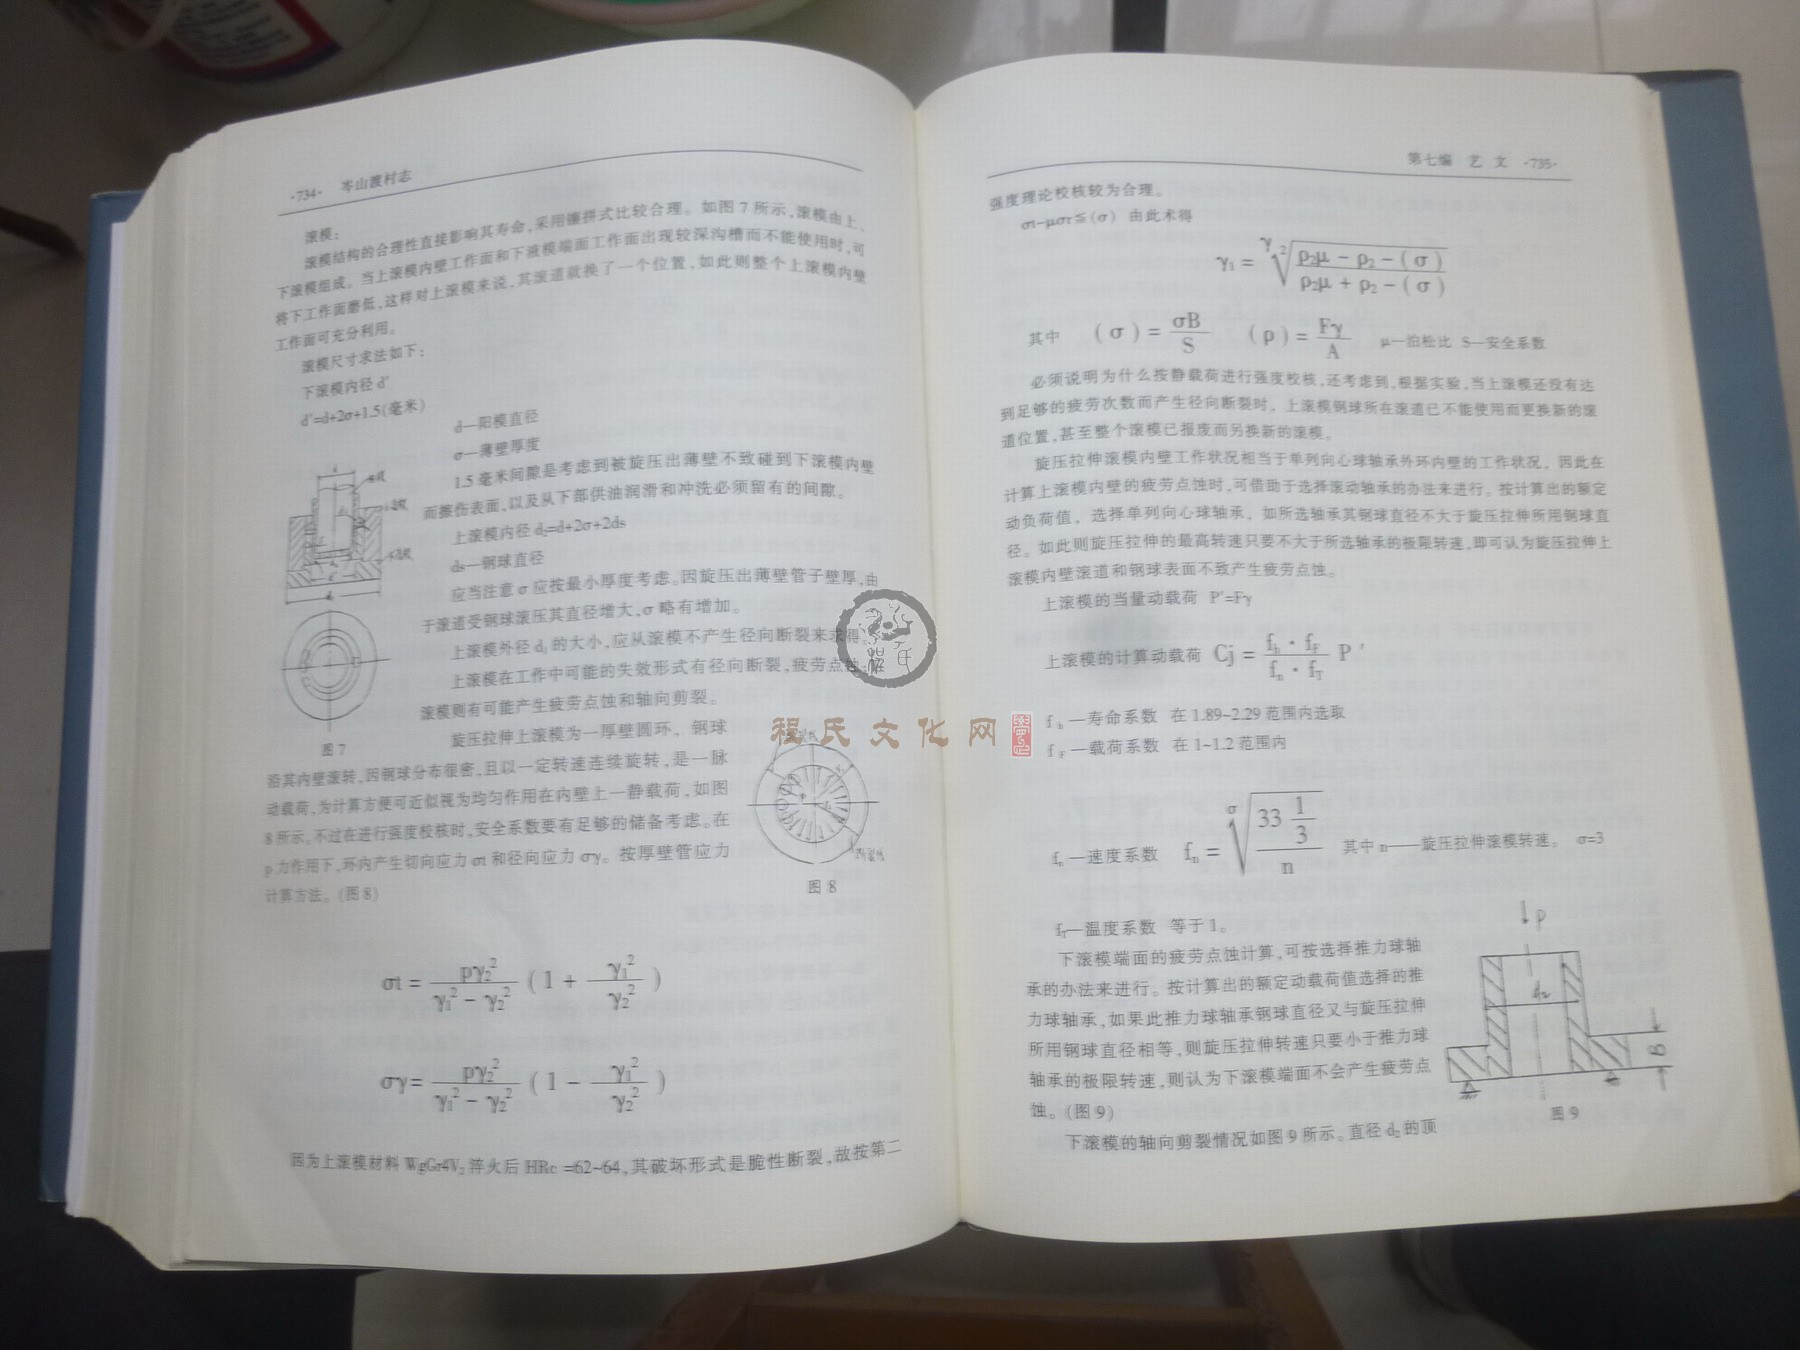 ·734· 岑山渡村志
滚模：
滚模结构的合理性直接影响其寿命，采用镶拼式比较合理。如图7所示，滚模由上、
下滚模组成。当上滚模内壁工作面和下液模端面工作面出现较深沟槽而不能使用时，可
将下工作面磨低，这样对上滚模来说，其滚道就换了一个位置，如此则整个上滚模内壁
工作面可充分利用。
滚模尺寸求法如下：
下滚模内径d'
d'=d+2σ+1.5(毫米)
d—阳模直径
σ—薄壁厚度
1.5毫米间隙是考虑到被旋压出薄壁不致碰到下滚模内壁
而擦伤表面，以及从下部供油润滑和冲洗必须留有的间隙。
上滚模内径d₂=d+2σ+2ds
ds—钢球直径
应当注意σ应按最小厚度考虑。因旋压出薄壁管子壁厚，由
于滚道受钢球滚压其直径增大，σ略有增加。
上滚模外径d₁的大小，应从滚模不产生径向断裂来求得。
上滚模在工作中可能的失效形式有径向断裂，疲劳点蚀，
滚模则有可能产生疲劳点蚀和轴向剪裂。
图7
旋压拉伸上滚模为一厚壁圆环，钢球
沿其内壁滚转，因钢球分布很密，且以一定转速连续旋转，是一脉
动载荷，为计算方便可近似视为均匀作用在内壁上一静载荷，如图
8所示。不过在进行强度校核时，安全系数要有足够的储备考虑。在
p力作用下，环内产生切向应力σt和径向应力σγ。按厚壁管应力
计算方法。(图8)
图8
σt = pγ₂² / (γ₁² − γ₂²) (1 + γ₁² / γ₂²)
σγ = pγ₂² / (γ₁² − γ₂²) (1 − γ₁² / γ₂²)
因为上滚模材料WgGr4V₂淬火后HRc =62~64，其破坏形式是脆性断裂，故按第二
第七编 艺 文 ·735·
强度理论校核较为合理。
σt-μσr≦(σ) 由此术得
γ₁ = γ ²√(ρ₂μ − ρ₂ − (σ) / ρ₂μ + ρ₂ − (σ))
其中 (σ) = σB / S (ρ) = Fγ / A μ—泊松比 S—安全系数
必须说明为什么按静载荷进行强度校核，还考虑到，根据实验，当上滚模还没有达
到足够的疲劳次数而产生径向断裂时，上滚模钢球所在滚道已不能使用而更换新的滚
道位置，甚至整个滚模已报废而另换新的滚模。
旋压拉伸滚模内壁工作状况相当于单列向心球轴承外环内壁的工作状况，因此在
计算上滚模内壁的疲劳点蚀时，可借助于选择滚动轴承的办法来进行。按计算出的额定
动负荷值，选择单列向心球轴承，如所选轴承其钢球直径不大于旋压拉伸所用钢球直
径。如此则旋压拉伸的最高转速只要不大于所选轴承的极限转速，即可认为旋压拉伸上
滚模内壁滚道和钢球表面不致产生疲劳点蚀。
上滚模的当量动载荷 P'=Fγ
上滚模的计算动载荷 Cj = (f_h · f_F) / (f_n · f_T) P'
f_h—寿命系数 在1.89~2.29范围内选取
f_F—载荷系数 在1~1.2范围内
f_n—速度系数 f_n = σ√(33 1/3 / n) 其中n——旋压拉伸滚模转速。 σ=3
f_T—温度系数 等于1。
下滚模端面的疲劳点蚀计算，可按选择推力球轴
承的办法来进行。按计算出的额定动载荷值选择的推
力球轴承，如果此推力球轴承钢球直径又与旋压拉伸
所用钢球直径相等，则旋压拉伸转速只要小于推力球
轴承的极限转速，则认为下滚模端面不会产生疲劳点
蚀。(图9)
p
d₂
B
图9
下滚模的轴向剪裂情况如图9所示。直径d₂的顶
程氏文化网